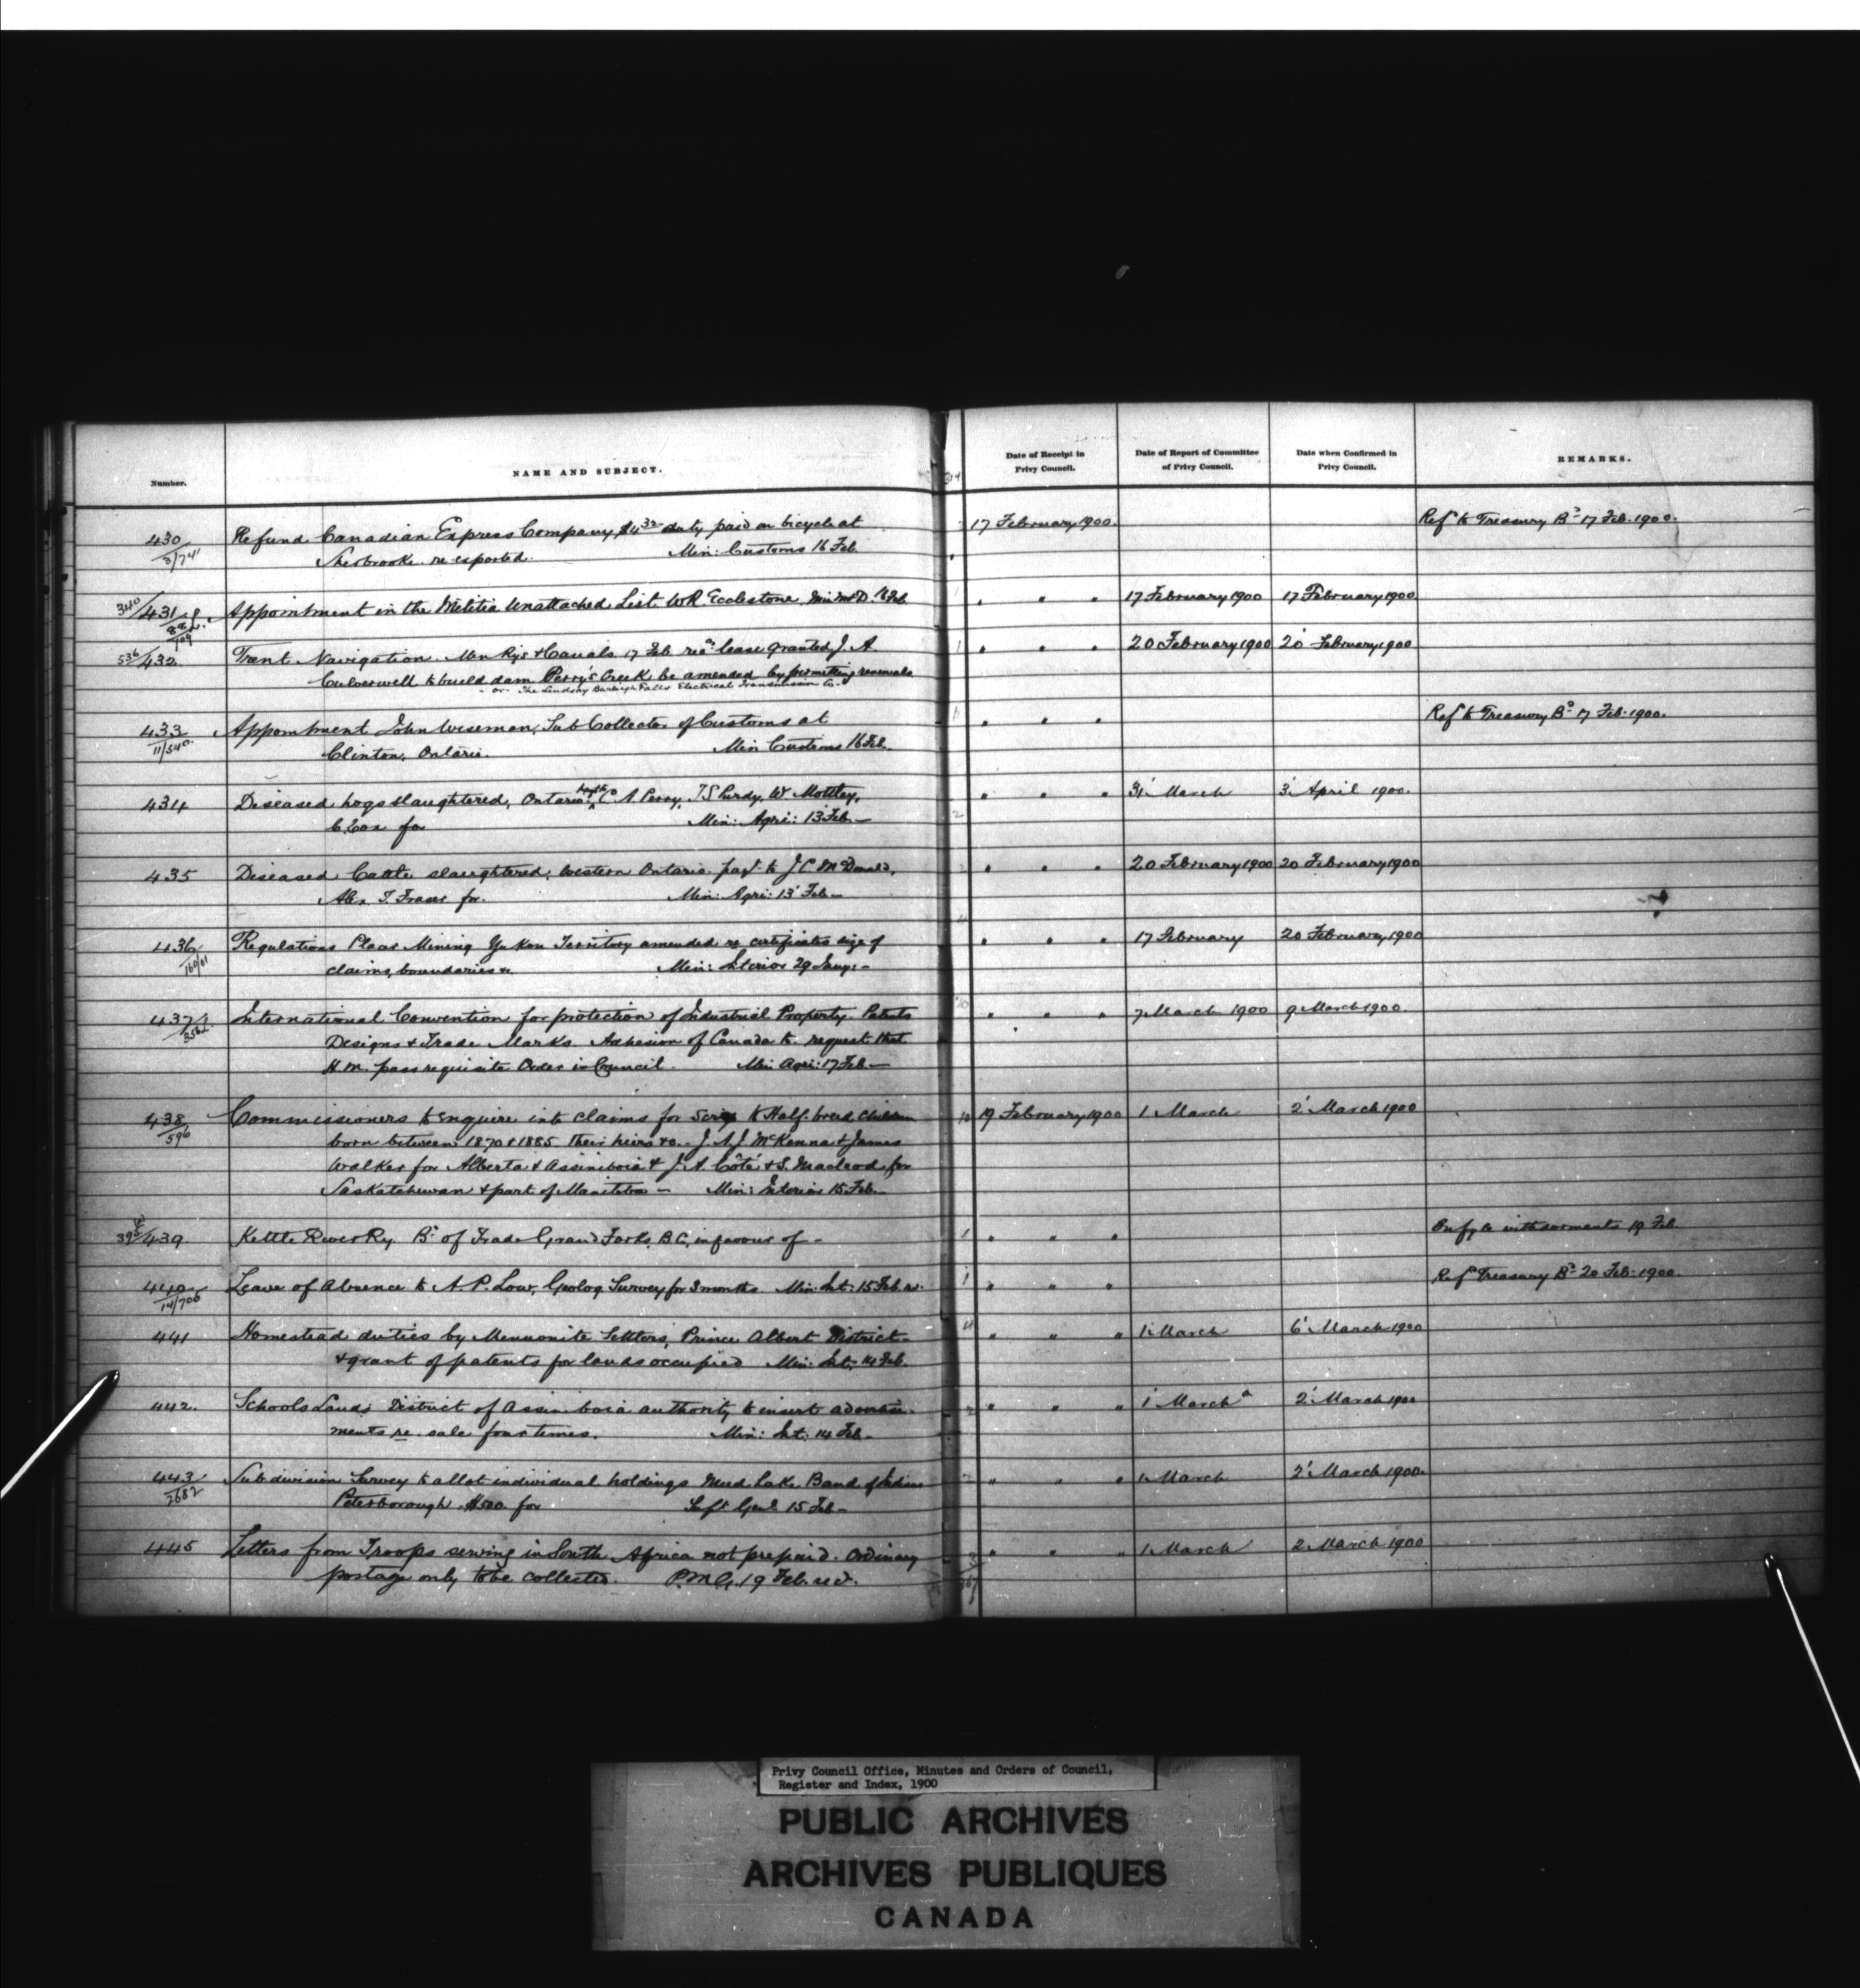 Number.
NAME AND SUBJECT.
Date of Receipt in Privy Council.
Date of Report of Committee of Privy Council.
Date when Confirmed in Privy Council.
REMARKS.
314
430 Refund Canadian Express Company duty paid on bicycle at 17 February 1900. Ref. to Treasury Bd 17 Feb. 1900.
5/74 Sherbrooke re exported. Min: Customs 16 Feb.
340/431 Appointment in the Militia Unattached List W.R. Ecclestone. Min M&D. Feb. " " " 17 February 1900 17 February 1900
536/432 Trent Navigation. Min Rys & Canals 17 Feb lease granted J. A. " " " 20 February 1900 20 February 1900
Culverwell to build dam Perry's Creek be amended by permitting renewals
or The Lindsay Burleigh Falls Electrical Transmission Co.
433 Appointment John Wiseman, Sub Collector of Customs at " " " Ref. to Treasury Bd 17 Feb. 1900.
11/340 Clinton, Ontario. Min Customs 16 Feb.
434 Diseased hogs slaughtered, Ontario, A Perry, T S Purdy, W. Mottley, " " " 31 March 3 April 1900.
C. Cox for Min: Agri: 13 Feb.
435 Diseased Cattle slaughtered, Western Ontario pay't to J C McDonald, " " " 20 February 1900 20 February 1900
Alex T. Fraser for. Min: Agri: 13 Feb
436 Regulations Placer Mining Yukon Territory amended re certificates size of " " " 17 February 20 February 1900
160/01 claims, boundaries &c. Min: Interior 29 Jany:
437 International Convention for protection of Industrial Property. Patents " " " 7 March 1900 9 March 1900.
Designs & Trade Marks. Adhesion of Canada to request that
H.M. pass requisite Order in Council. Min Agri: 17 Feb
438 Commissioners to enquire into claims for Scrip to Half-breed children 19 February 1900 1 March 2 March 1900
596 born between 1870 & 1885 their heirs &c. J. A. J. McKenna & James
Walker for Alberta & Assiniboia & J. A. Côté & S. Macleod for
Saskatchewan & part of Manitoba - Min: Interior 15 Feb.
439 Kettle River Ry. Bd of Trade Grand Forks, B.C, in favour of - " " " 19 Feb
440 Leave of Absence to A. P. Low, Geolog Survey for 3 months Min: Int: 15 Feb " " " Ref Treasury Bd 20 Feb. 1900.
14/706
441 Homestead duties by Mennonite Settlers, Prince Albert District " " " 1 March 6 March 1900
& grant of patents for lands occupied Min: Int: 14 Feb.
442. Schools Lands District of Assiniboia authority to insert advertise- " " " 1 March 2 March 1900
ments re sale four times. Min: Int: 14 Feb -
443 Subdivision Survey to allot individual holdings Mud Lake Band of Indians " " " 1 March 2 March 1900.
2682 Peterborough. $500 for Supt Genl 15 Feb -
445 Letters from Troops serving in South Africa not prepaid. Ordinary " " " 1 March 2 March 1900
postage only to be collected. P.M.G. 19 Feb.
Privy Council Office, Minutes and Orders of Council,
Register and Index, 1900
PUBLIC ARCHIVES
ARCHIVES PUBLIQUES
CANADA